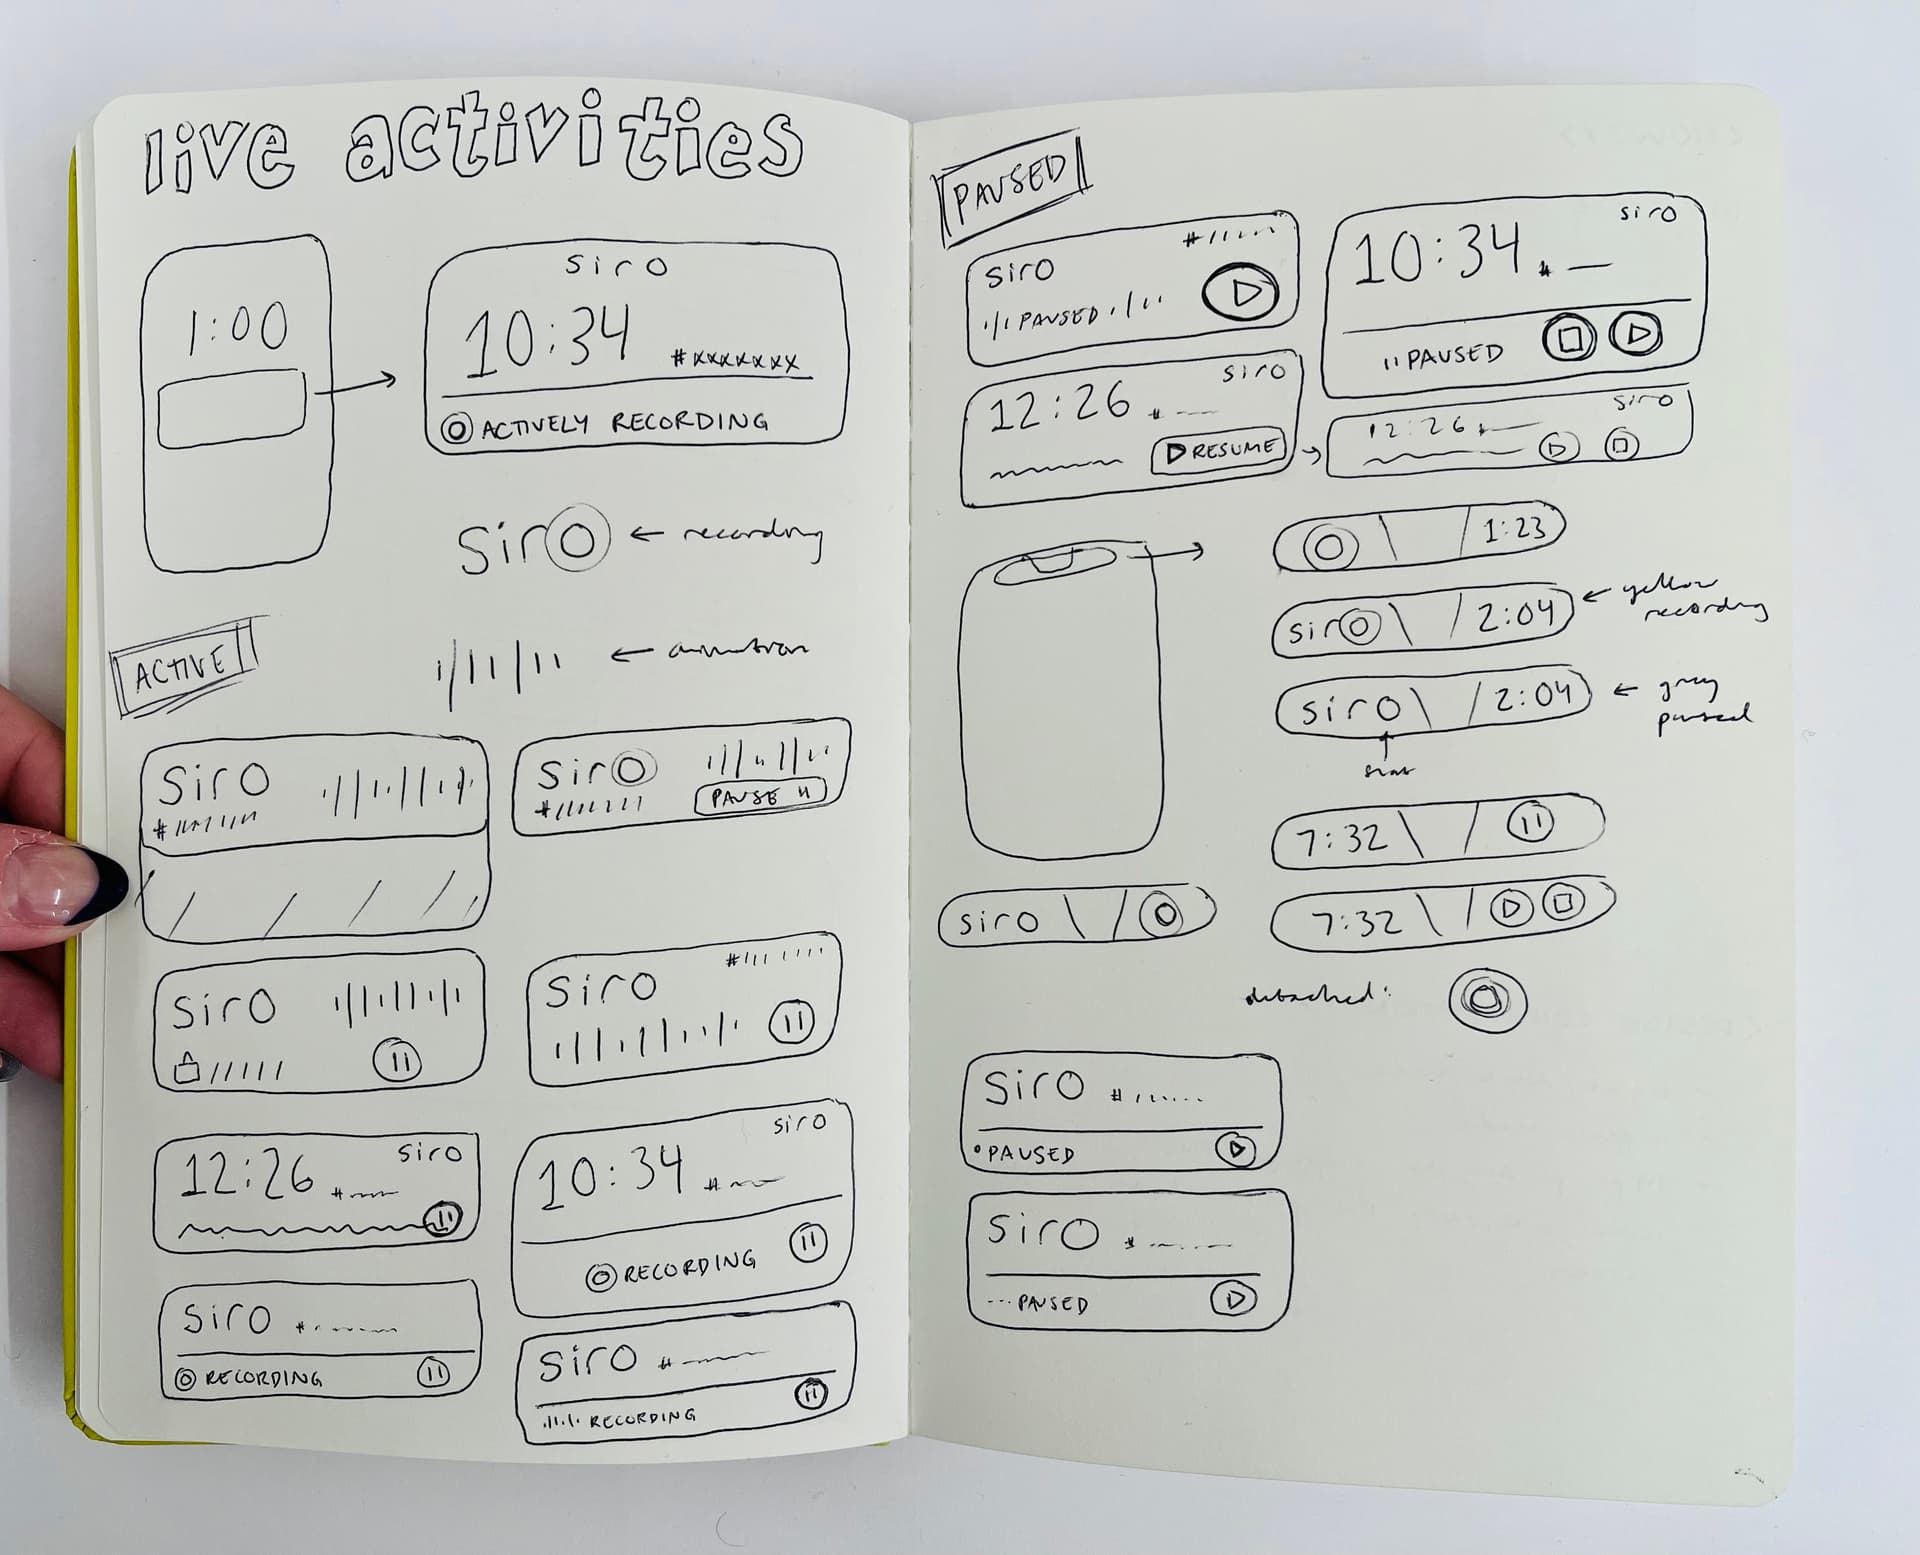 live activities
1:00
siro
10:34
#xxxxxxx
ACTIVELY RECORDING
siro ← recording
← animation
ACTIVE
siro
#
siro
#
PAUSE
siro
siro
#
12:26 siro
#
siro
10:34 #
RECORDING
siro #
RECORDING
siro #
RECORDING
PAUSED
#
siro
PAUSED
siro
10:34 #
PAUSED
12:26 siro
#
RESUME
siro
12:26
1:23
siro 2:04 ← yellow
recording
siro 2:04 ← grey
paused
7:32
siro
7:32
detached:
siro #
PAUSED
siro #
PAUSED